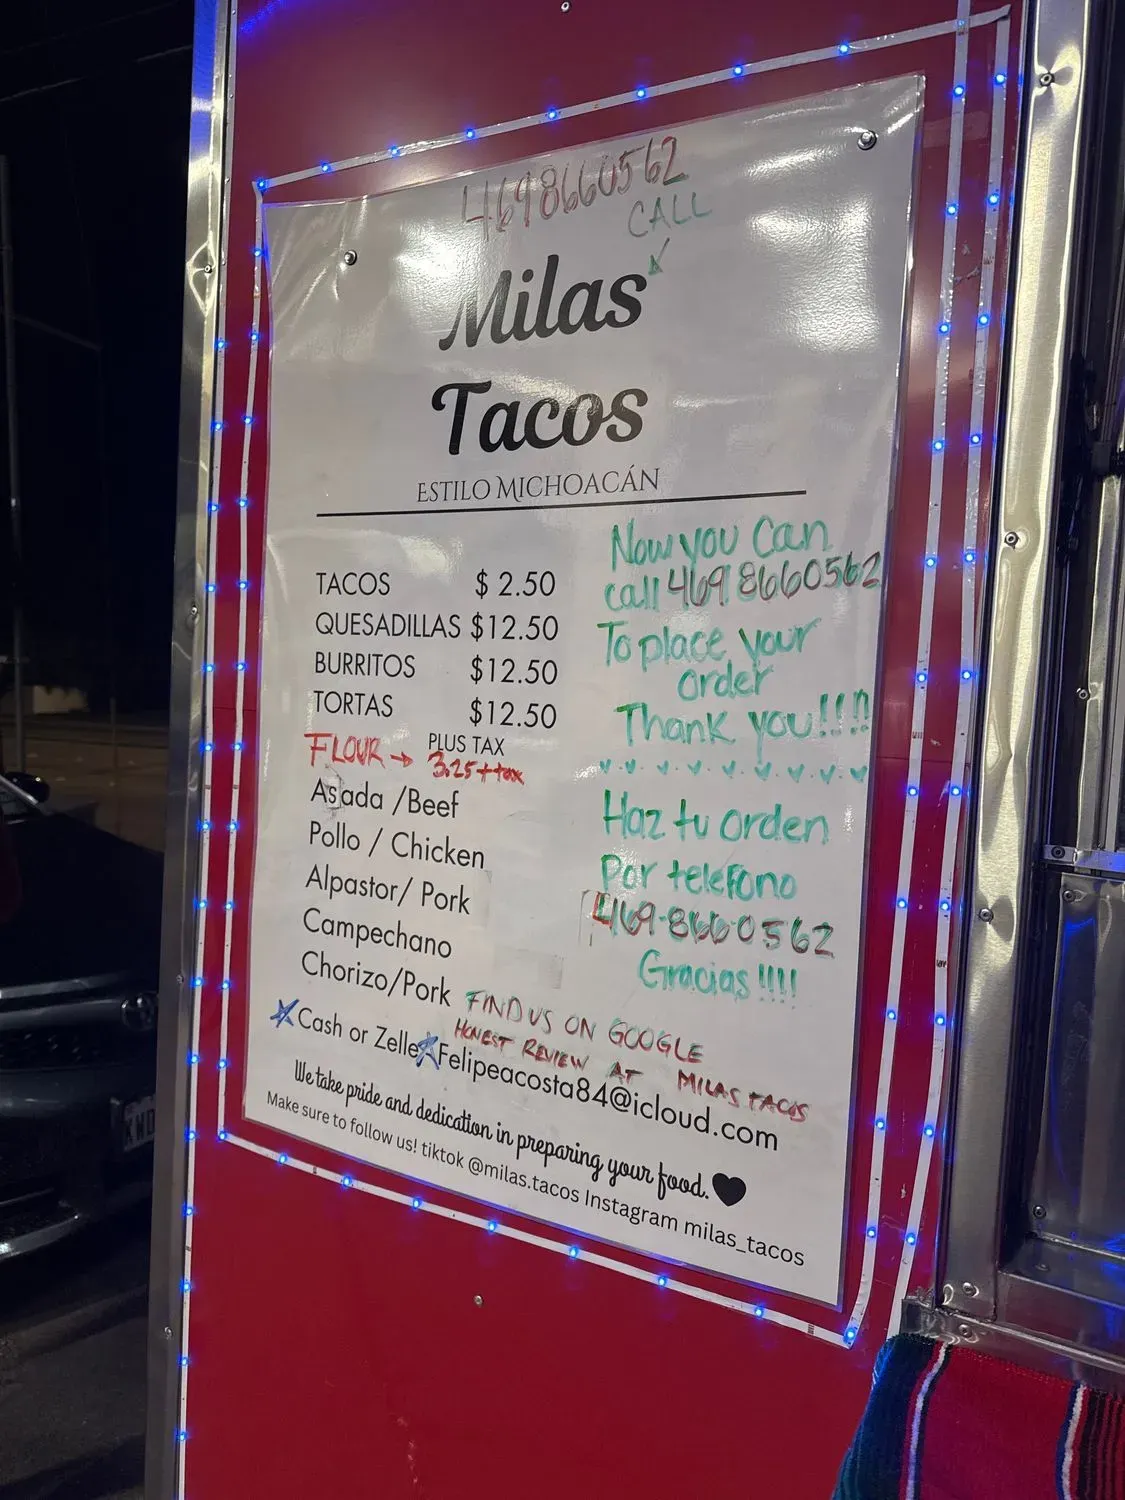 4698660562
CALL
Milas
Tacos
ESTILO MICHOACÁN
TACOS $ 2.50
QUESADILLAS $12.50
BURRITOS $12.50
TORTAS $12.50
PLUS TAX
FLOUR → 3.25+tax
Asada /Beef
Pollo / Chicken
Alpastor/ Pork
Campechano
Chorizo/Pork
Now you Can
call 469 8660562
To place your
order
Thank you!!!!
Haz tu orden
Por telefono
469-866-0562
Gracias !!!!
FIND US ON GOOGLE
HONEST REVIEW AT MILAS TACOS
Cash or Zelle Felipeacosta84@icloud.com
We take pride and dedication in preparing your food.
Make sure to follow us! tiktok @milas.tacos Instagram milas_tacos